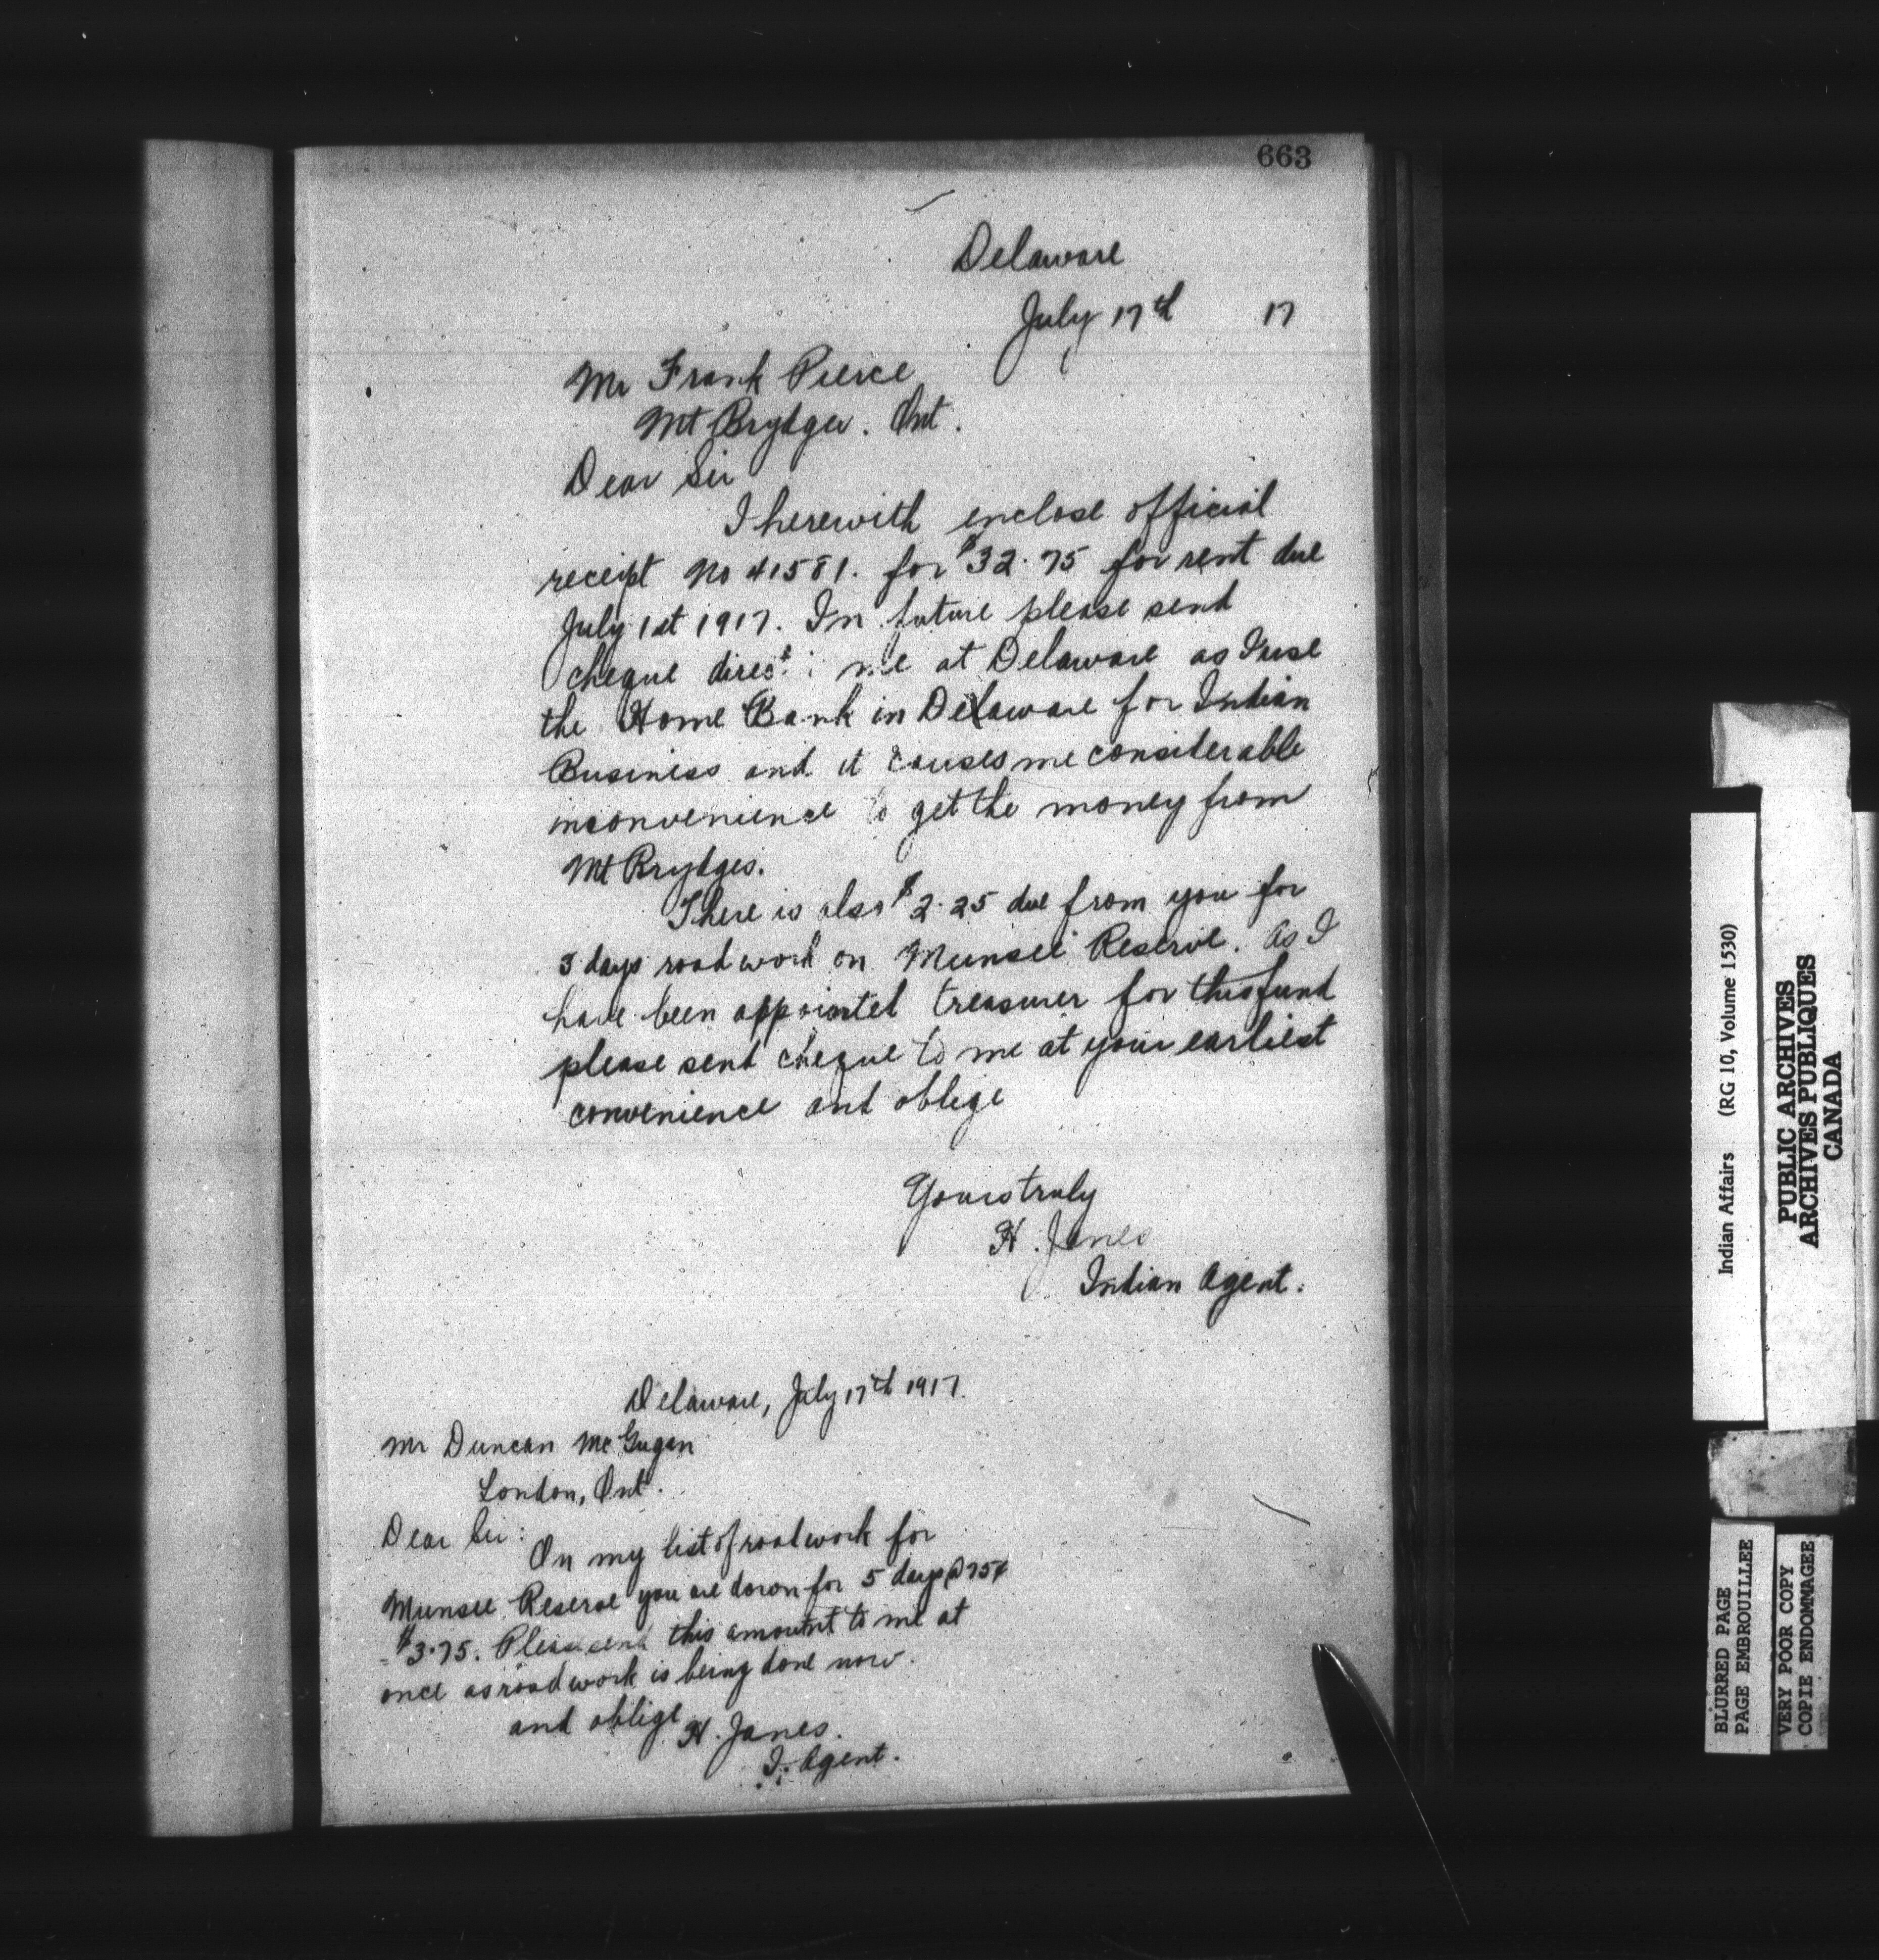 663
Delaware
July 17th 17
Mr Frank Pierce
Mt Brydges. Ont.
Dear Sir
I herewith enclose official
receipt No 41581. for $32.75 for rent due
July 1st 1917. In future please send
cheque direct me at Delaware as I use
the Home Bank in Delaware for Indian
Business and it causes me considerable
inconvenience to get the money from
Mt Brydges.
There is also $2.25 due from you for
3 days road work on Munsee Reserve. As I
have been appointed treasurer for this fund
please send cheque to me at your earliest
convenience and oblige
Yours truly
H. Janes
Indian Agent.
Delaware, July 17th 1917.
Mr Duncan McGugan
London, Ont.
Dear Sir:
On my list of road work for
Munsee Reserve you are down for 5 days @ 75¢
= $3.75. Please send this amount to me at
once as road work is being done now.
and oblige
H. Janes.
I. Agent.
Indian Affairs (RG 10, Volume 1530)
PUBLIC ARCHIVES
ARCHIVES PUBLIQUES
CANADA
BLURRED PAGE
PAGE EMBROUILLEE
VERY POOR COPY
COPIE ENDOMMAGEE